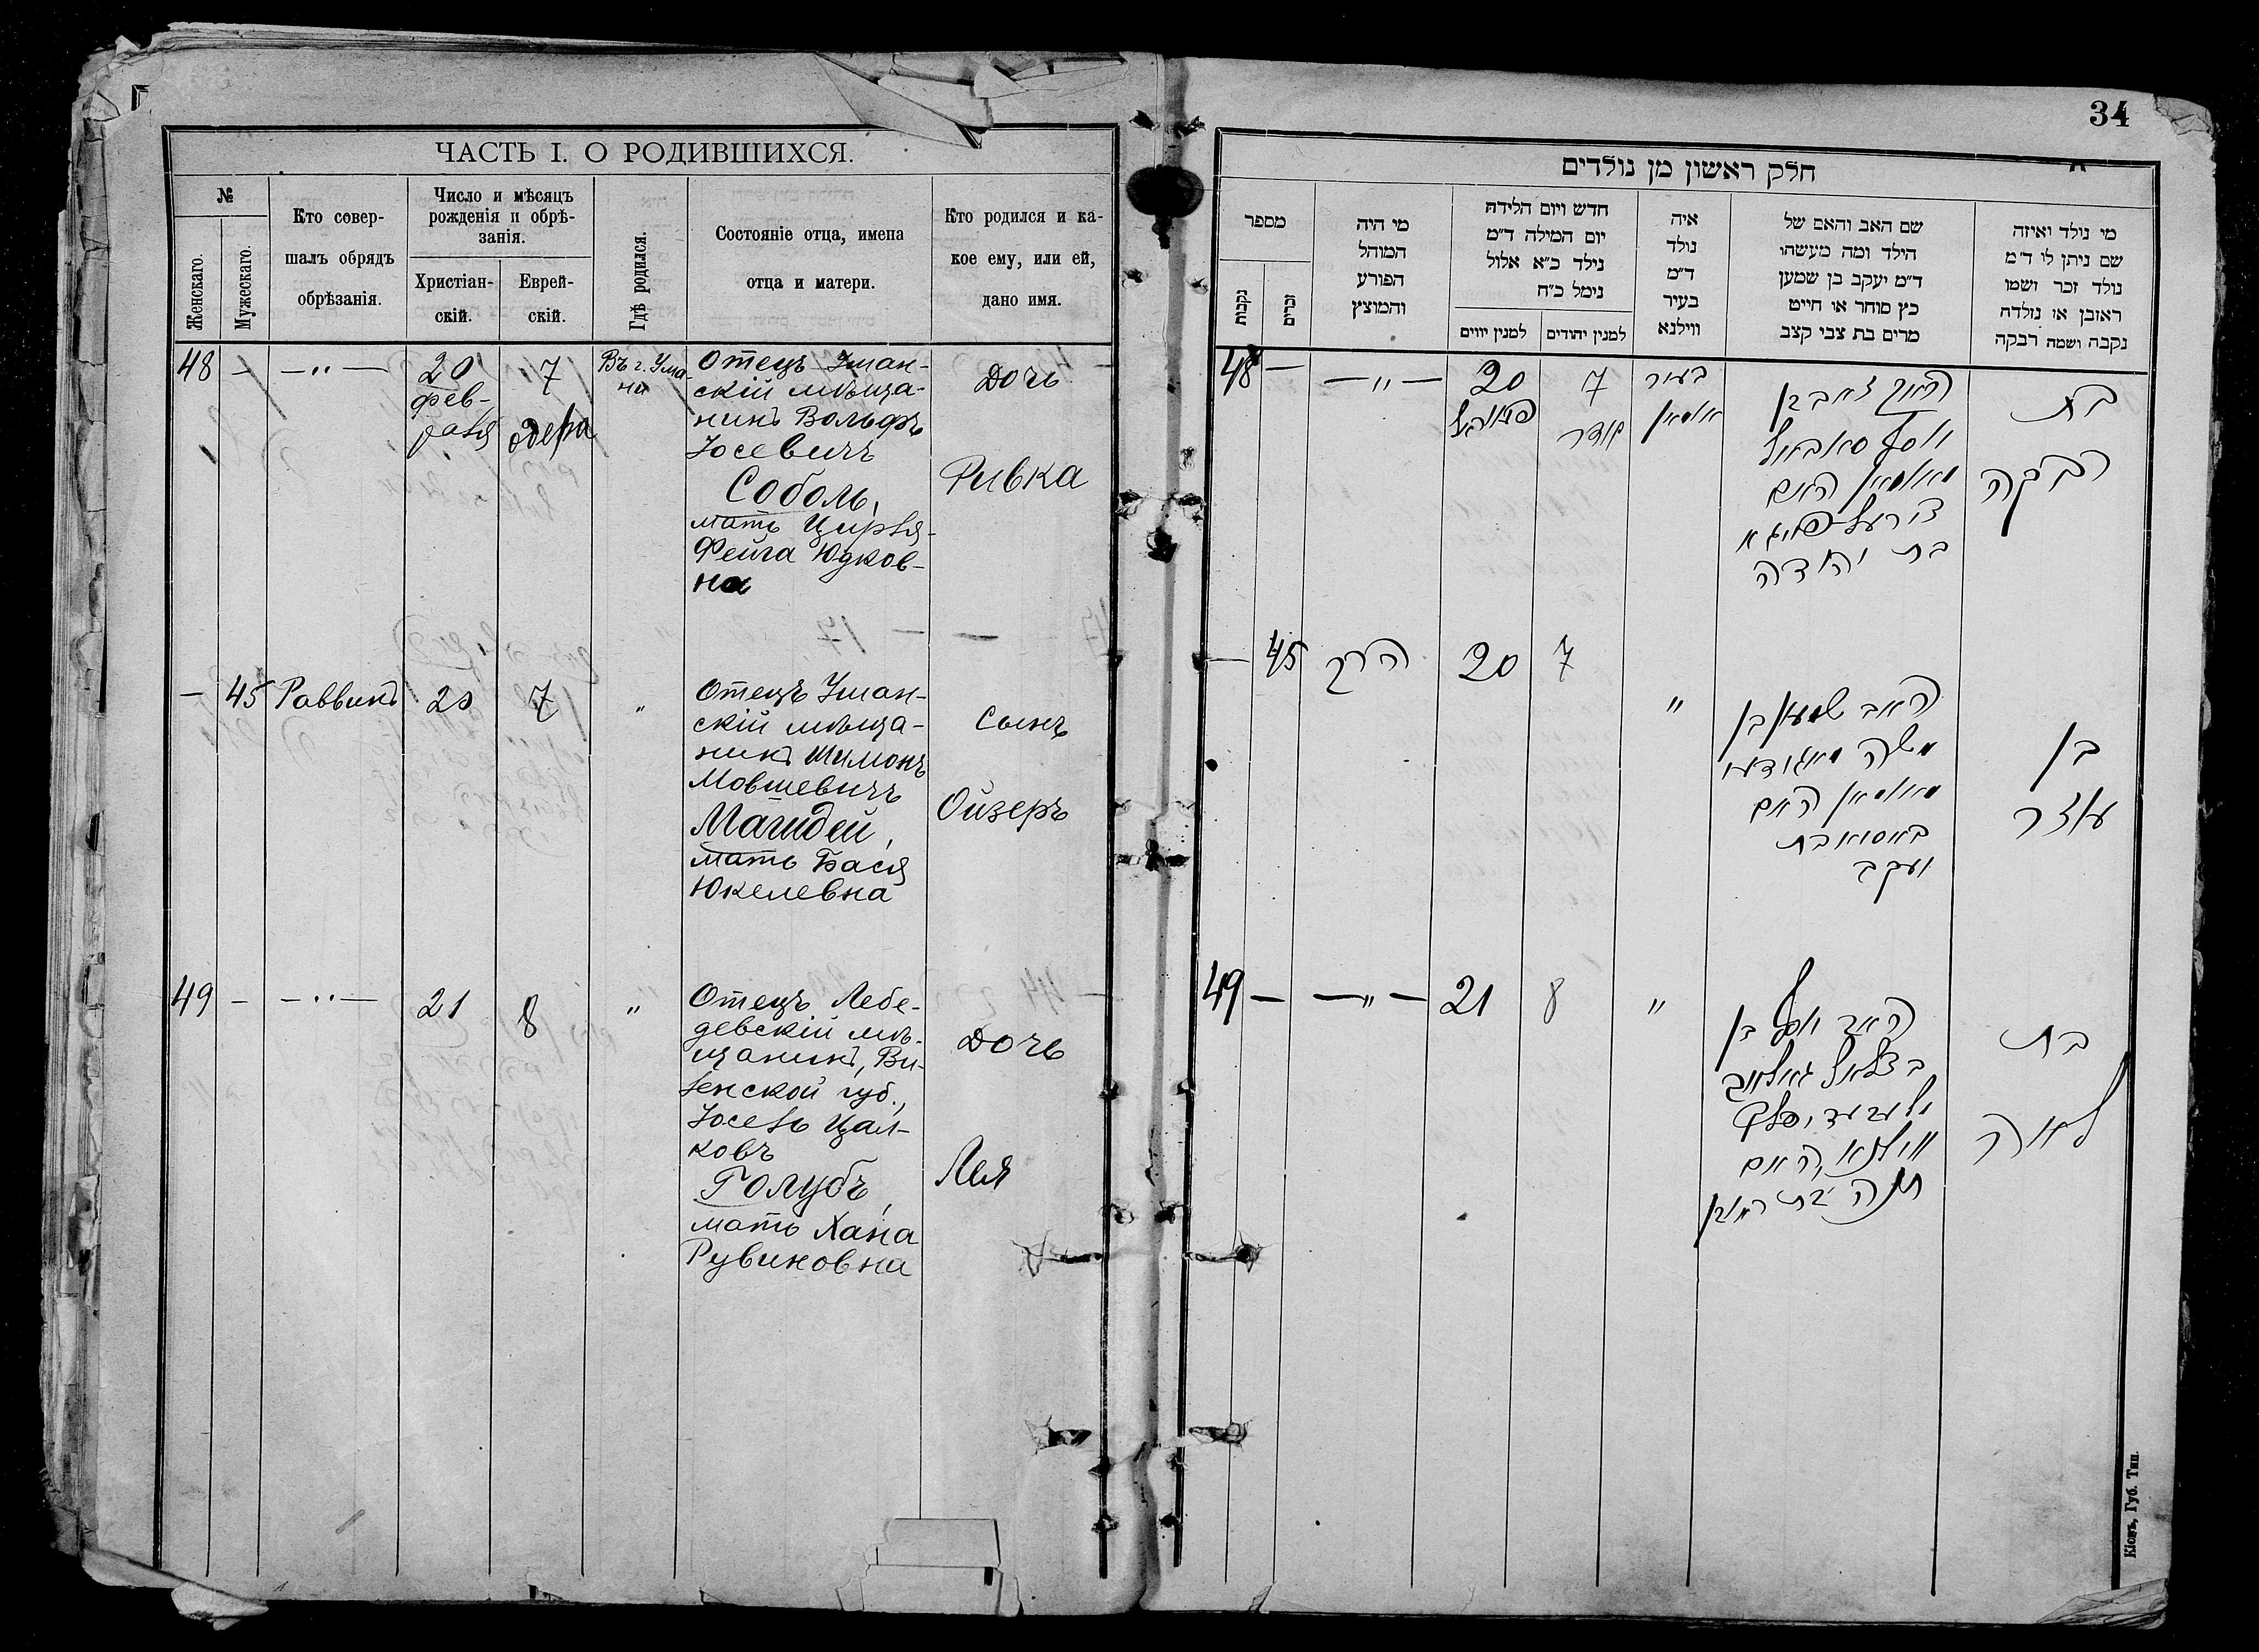 34
ЧАСТЬ I. О РОДИВШИХСЯ.
№
Женскаго.
Мужескаго.
Кто совер-
шалъ обрядъ
обрѣзанія.
Число и мѣсяцъ
рожденія и обрѣ-
занія.
Христіан-
скій.
Еврей-
скій.
Гдѣ родился.
Состояніе отца, имена
отца и матери.
Кто родился и ка-
кое ему, или ей,
дано имя.
48 — — „ — 20 7 Въ г. Ума-
фев- ни
раля одера
Отецъ Уман-
скій мѣща-
нинъ Вольфъ
Іосевичъ
Соболь,
мать Цирля-
Фейга Юдков-
на
Дочь
Ривка
— 45 Раввинъ 20 7 „
Отецъ Уман-
скій мѣща-
нинъ Шимонъ
Мовшевичъ
Магидей,
мать Бася
Юкелевна
Сынъ
Ойзеръ
49 — — „ — 21 8 „
Отецъ Лебе-
девскій мѣ-
щанинъ, Ви-
ленской губ.,
Іосель Цал-
ковъ
Голубъ,
мать Хана
Рувиновна
Дочь
Лея
חלק ראשון מן נולדים
מספר
נקבות
זכרים
מי היה
המוהל
הפורע
והמוצץ
חדש ויום הלידה
יום המילה ד״מ
נילד כ״א אלול
נימל כ״ח
למנין יווים
למנין יהודים
איה
נולד
ד״מ
בעיר
ווילנא
שם האב והאם של
הילד ומה מעשהו
ד״מ יעקב בן שמען
כץ סוחר או חייט
מרים בת צבי קצב
מי נולד ואיזה
שם ניתן לו ד״מ
נולד זכר ושמו
ראובן או נולדה
נקבה ושמה רבקה
48 — — „ — 20 7 בעיר
אומאן
פעווראל
אדר
האב זאב בן
יוסף סאבאל
מאומאן האם
צירעל-פייגא
בת יהודה
בת
רבקה
— 45 הרב 20 7 „
האב שמעון בן
משה
מאומאן האם
באסיא בת
יעקב
בן
עוזר
49 — — „ — 21 8 „
האב יוסף בן
בצלאל גאלוב
ווילנא, האם
חנה בת ראובן
בת
לאה
Кіевъ, Губ. Тип.